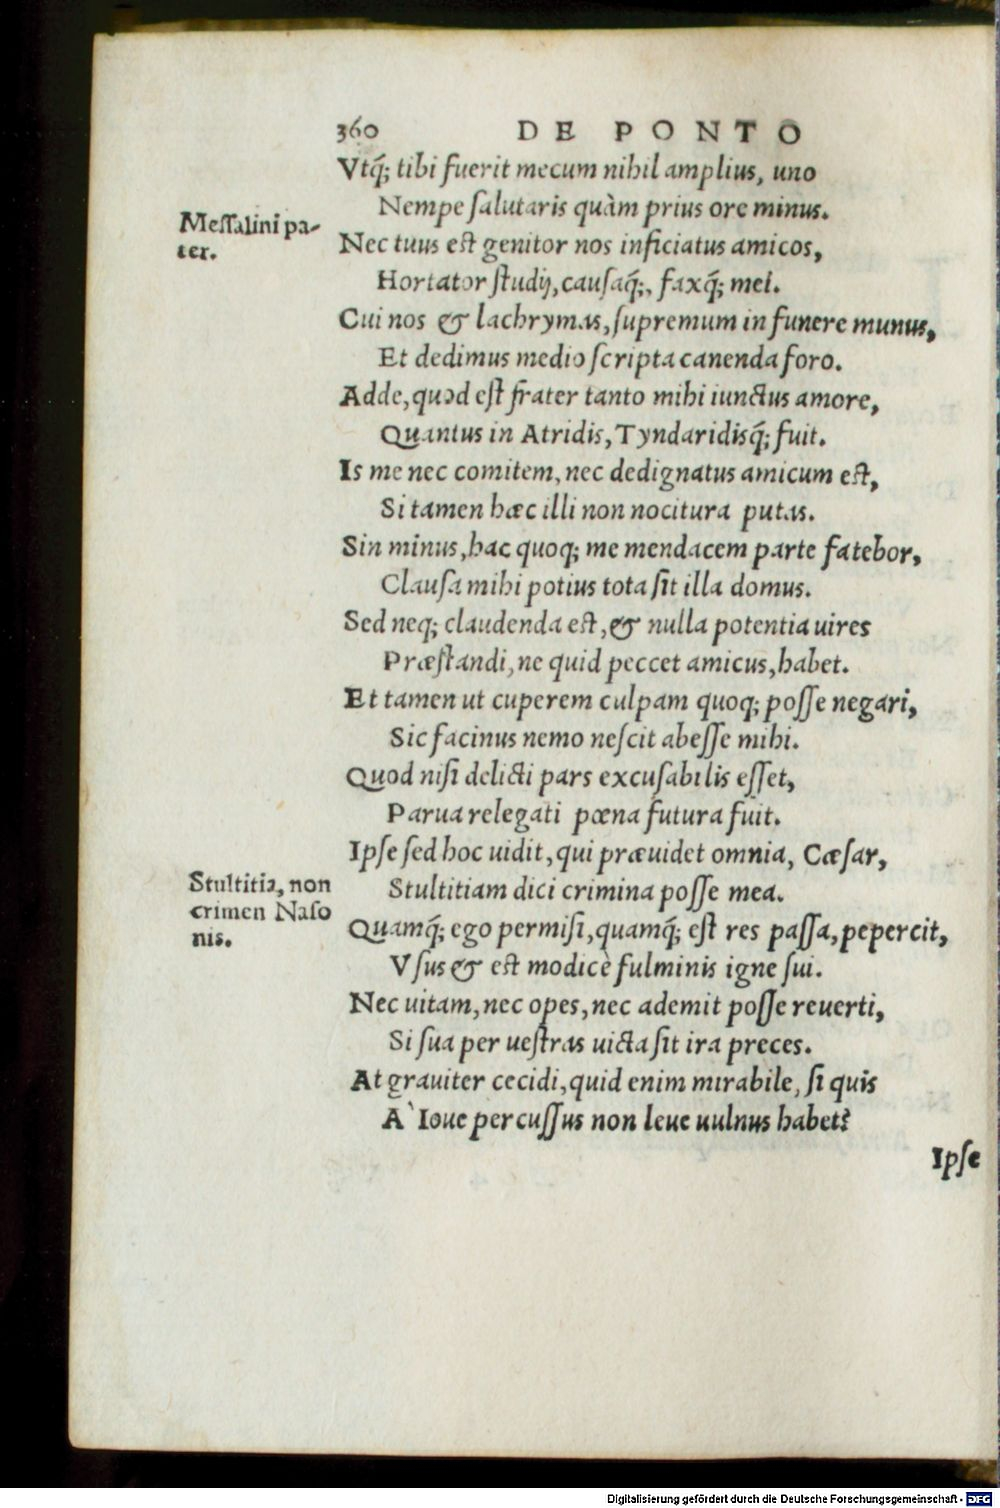 360 DE PONTO
Vtq́; tibi fuerit mecum nihil amplius, uno
Nempe ſalutaris quàm prius ore minus.
Meſſalini pa-
ter.
Nec tuus eſt genitor nos inficiatus amicos,
Hortator ſtudij, cauſaq́;, faxq́; mei.
Cui nos & lachrymas, ſupremum in funere munus,
Et dedimus medio ſcripta canenda foro.
Adde, quod eſt frater tanto mihi iunctus amore,
Quantus in Atridis, Tyndaridisq́; fuit.
Is me nec comitem, nec dedignatus amicum eſt,
Si tamen hæc illi non nocitura putas.
Sin minus, hac quoq; me mendacem parte fatebor,
Clauſa mihi potius tota ſit illa domus.
Sed neq; claudenda eſt, & nulla potentia uires
Præſtandi, ne quid peccet amicus, habet.
Et tamen ut cuperem culpam quoq; poſſe negari,
Sic facinus nemo neſcit abeſſe mihi.
Quod niſi delicti pars excuſabilis eſſet,
Parua relegati pœna futura fuit.
Ipſe ſed hoc uidit, qui præuidet omnia, Cæſar,
Stultitiam dici crimina poſſe mea.
Stultitia, non
crimen Naſo
nis.
Quamq́; ego permiſi, quamq́; eſt res paſſa, pepercit,
Vſus & eſt modicè fulminis igne ſui.
Nec uitam, nec opes, nec ademit poſſe reuerti,
Si ſua per ueſtras uicta ſit ira preces.
At grauiter cecidi, quid enim mirabile, ſi quis
A` Ioue percuſſus non leue uulnus habet?
Ipſe
Digitalisierung gefördert durch die Deutsche Forschungsgemeinschaft - DFG